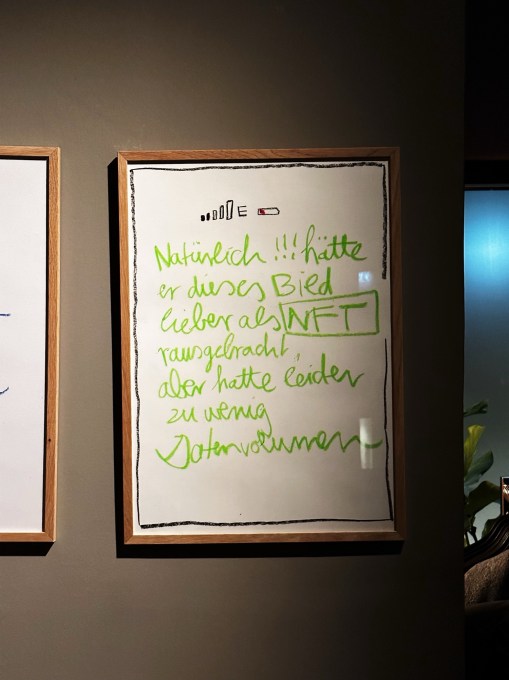 E
Natürlich !!! hätte
er dieses Bild
lieber als NFT
rausgebracht,
aber hatte leider
zu wenig
Datenvolumen